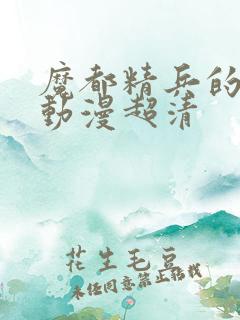 魔都精兵的
動漫超清
花生毛豆
未经同意禁止搭载